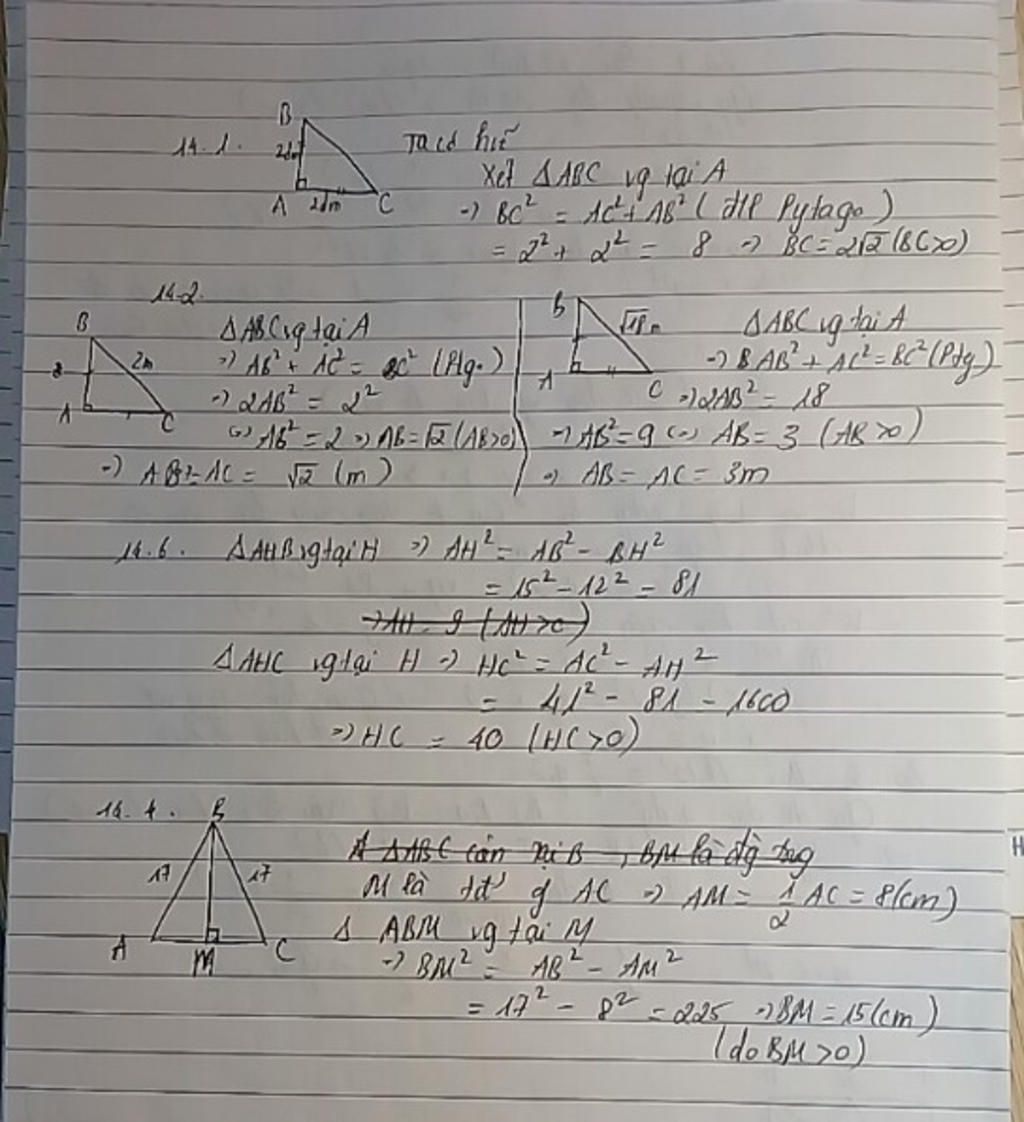 14.1.
B
2dm
A 2dm C
Ta có hvẽ
Xét ΔABC vg tại A
=> BC² = AC² + AB² (đlP Pytago)
= 2² + 2² = 8 => BC = 2√2 (BC>0)
14.2.
B
2m
A C
ΔABC vg tại A
=> AB² + AC² = BC² (Ptg.)
=> 2AB² = 2²
(=> AB² = 2 => AB = √2 (AB>0)
=> AB = AC = √2 (m)
B
√18 m
A C
ΔABC vg tại A
=> AB² + AC² = BC² (Ptg)
=> 2AB² = 18
=> AB² = 9 (=> AB = 3 (AB>0)
=> AB = AC = 3m
14.6. ΔAHB vg tại H => AH² = AB² - BH²
= 15² - 12² = 81
=> AH = 9 (AH>0)
ΔAHC vg tại H => HC² = AC² - AH²
= 41² - 81 = 1600
=> HC = 40 (HC>0)
14.4.
B
17 17
A M C
ΔABC cân tại B, BM là đg
M là AC => AM = 1/2 AC = 8(cm)
Δ ABM vg tại M
=> BM² = AB² - AM²
= 17² - 8² = 225 => BM = 15(cm)
(do BM>0)
H